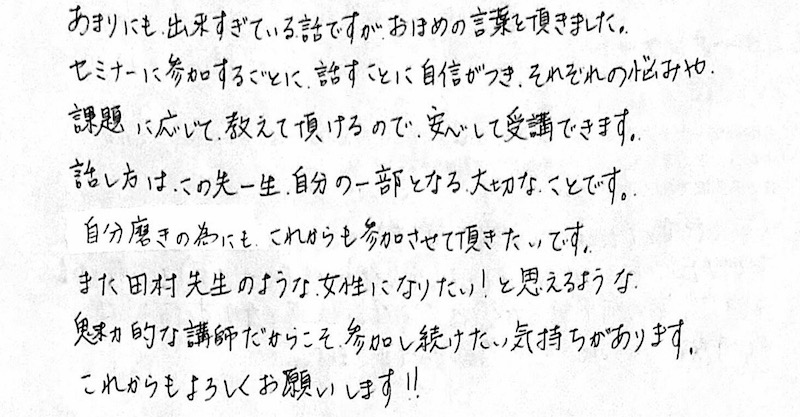 あまりにも、出来すぎている話ですが、おほめの言葉を頂きました。
セミナーに参加するごとに、話すことに自信がつき、それぞれの悩みや、
課題に応じて、教えて頂けるので、安心して受講できます。
話し方は、この先一生、自分の一部となる、大切な、ことです。
自分磨きの為にも、これからも参加させて頂きたいです。
また田村先生のような、女性になりたい!と思えるような、
魅力的な講師だからこそ、参加し続けたい気持ちがあります。
これからもよろしくお願いします!!